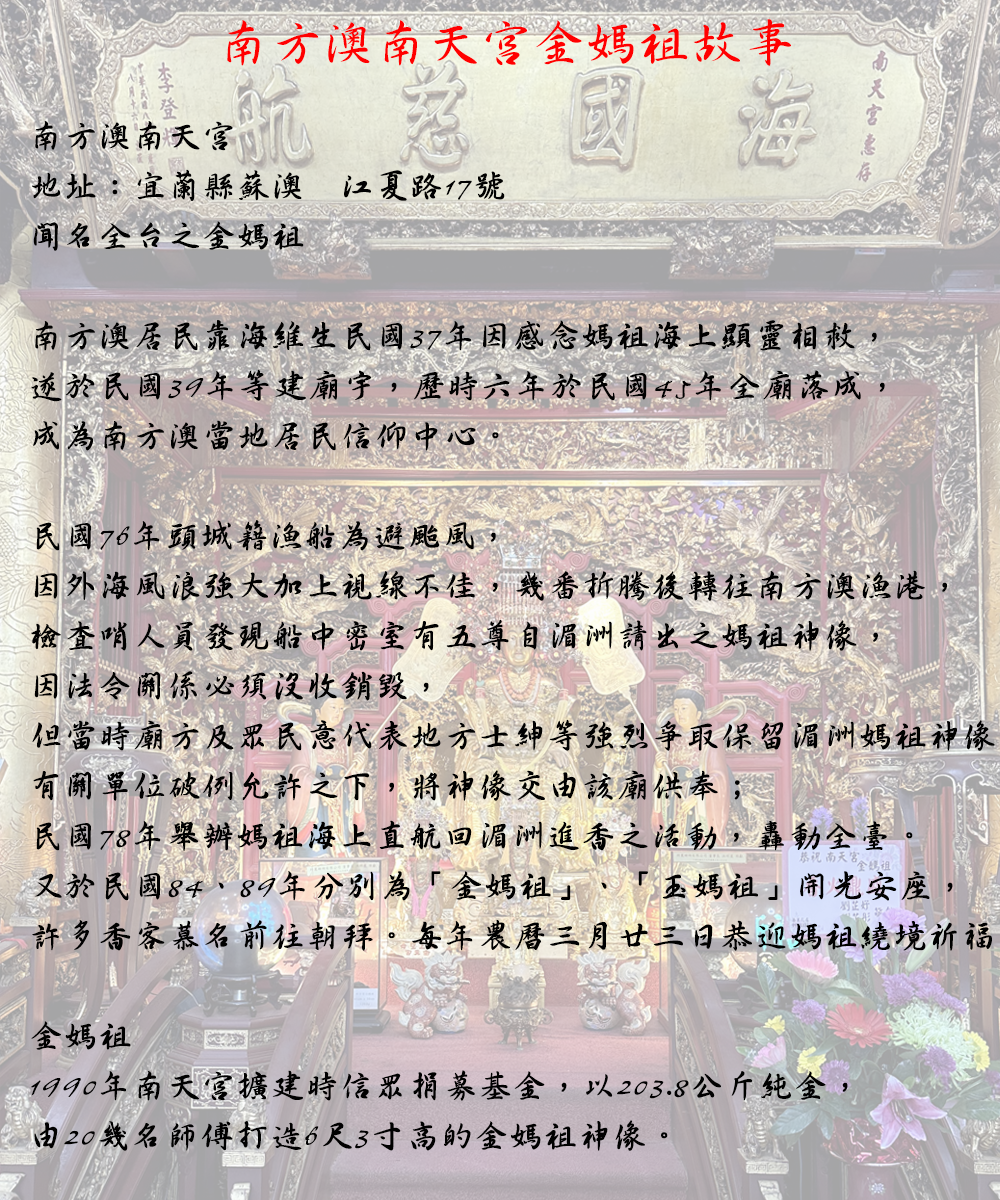 南方澳南天宮金媽祖故事
南天宮惠存
海國慈航
李登
南方澳南天宮
地址：宜蘭縣蘇澳　江夏路17號
聞名全台之金媽祖
南方澳居民靠海維生民國37年因感念媽祖海上顯靈相救，
遂於民國39年等建廟宇，歷時六年於民國45年全廟落成，
成為南方澳當地居民信仰中心。
民國76年頭城籍漁船為避颱風，
因外海風浪強大加上視線不佳，幾番折騰後轉往南方澳漁港，
檢查哨人員發現船中密室有五尊自湄洲請出之媽祖神像，
因法令關係必須沒收銷毀，
但當時廟方及眾民意代表地方士紳等強烈爭取保留湄洲媽祖神像
有關單位破例允許之下，將神像交由該廟供奉；
民國78年舉辦媽祖海上直航回湄洲進香之活動，轟動全臺。
又於民國84、89年分別為「金媽祖」、「玉媽祖」開光安座，
許多香客慕名前往朝拜。每年農曆三月廿三日恭迎媽祖繞境祈福
恭祝 南天宮
金媽祖
金媽祖
1990年南天宮擴建時信眾捐募基金，以203.8公斤純金，
由20幾名師傅打造6尺3寸高的金媽祖神像。